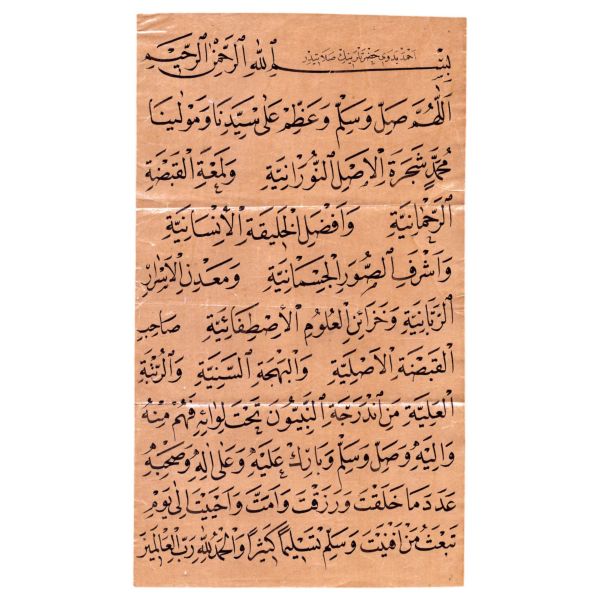 احمد بدوي حضرتلرينك صلاتيدر
بِسْمِ اللهِ الرَّحْمٰنِ الرَّحِيْمِ
اَللّٰهُمَّ صَلِّ وَسَلِّمْ وَعَظِّمْ عَلٰى سَيِّدِنَا وَمَوْلٰينَا
مُحَمَّدٍ شَجَرَةِ الْاَصْلِ النُّورَانِيَّةِ وَلَمْعَةِ الْقَبْضَةِ
الرَّحْمَانِيَّةِ وَاَفْضَلِ الْخَلِيقَةِ الْاِنْسَانِيَّةِ
وَاَشْرَفِ الصُّوَرِ الْجِسْمَانِيَّةِ وَمَعْدِنِ الْاَسْرَارِ
الرَّبَّانِيَّةِ وَخَزَائِنِ الْعُلُومِ الْاِصْطِفَائِيَّةِ صَاحِبِ
الْقَبْضَةِ الْاَصْلِيَّةِ وَالْبَهْجَةِ السَّنِيَّةِ وَالرُّتْبَةِ
الْعَلِيَّةِ مَنِ انْدَرَجَةِ النَّبِيُّونَ تَحْتَ لِوَائِهِ فَهُمْ مِنْهُ
وَاِلَيْهِ وَصَلِّ وَسَلِّمْ وَبَارِكْ عَلَيْهِ وَعَلٰى اٰلِهِ وَصَحْبِهِ
عَدَدَ مَا خَلَقْتَ وَرَزَقْتَ وَاَمَتَّ وَاَحْيَيْتَ اِلٰى يَوْمِ
تَبْعَثُ مَنْ اَفْنَيْتَ وَسَلِّمْ تَسْلِيمًا كَثِيرًا وَالْحَمْدُ لِلّٰهِ رَبِّ الْعَالَمِينَ